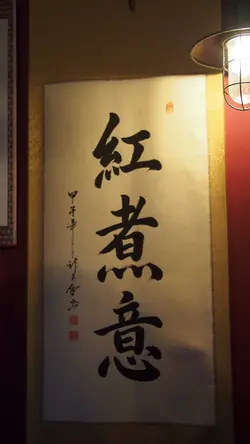 紅煮意
甲午年